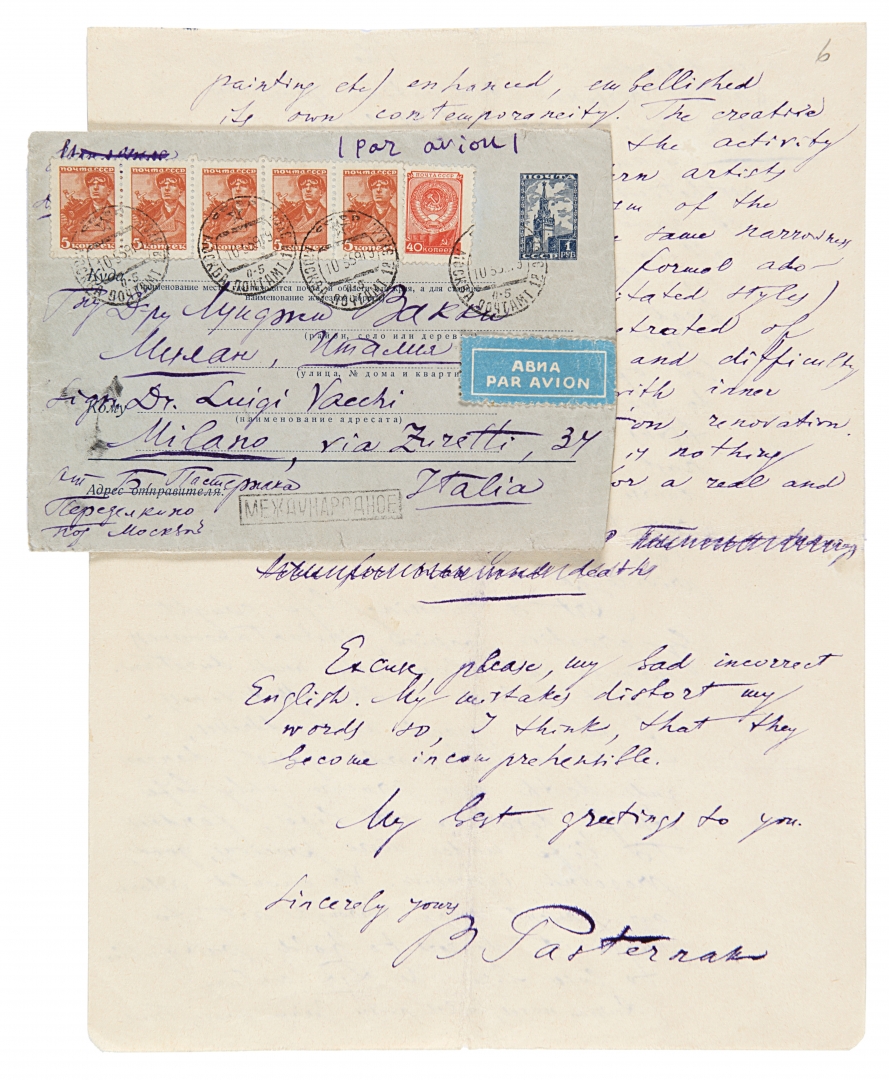 6
painting etc) enhanced, embellished
its own contemporaneity. The creative
the activity
ern artists
sm of the
same narrowness
formal ado-
itated styles)
etrated of
and difficulty
with inner
ion, renovation.
is nothing
or a real and
death
Excuse, please, my bad incorrect
English. My mistakes distort my
words so, I think, that they
become incomprehensible.
My best greetings to you.
Sincerely yours
B Pasternak
(par avion)
ПОЧТА СССР
5 КОПЕЕК
ПОЧТА СССР
5 КОПЕЕК
ПОЧТА СССР
5 КОПЕЕК
ПОЧТА СССР
5 КОПЕЕК
ПОЧТА СССР
5 КОПЕЕК
ПОЧТА СССР
40 КОПЕЕК
ПОЧТА
1 РУБ
СССР
МОСКВА ПОЧТАМТ
Куда
наименование железно
Г-ну Д-ру Луиджи Вакки
(район, село или дерев
Милан, Италия
(улица, № дома и кварти
АВИА
PAR AVION
Кому
Sign. Dr. Luigi Vacchi
(наименование адресата)
Milano, via Zuretti, 34
Italia
Адрес отправителя:
от Б. Пастернака
Переделкино
под Москвой
МЕЖДУНАРОДНОЕ